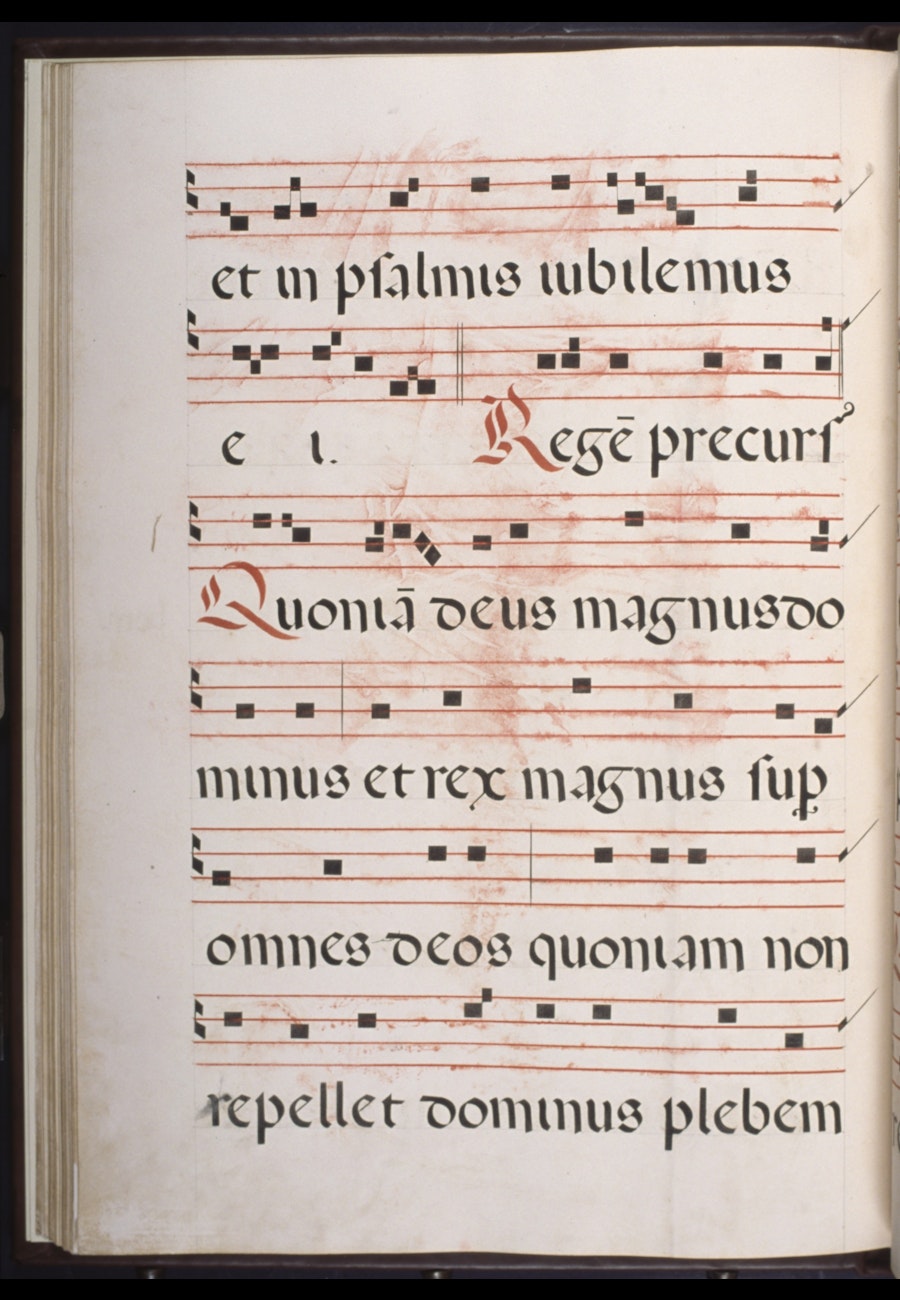 et in pſalmis iubilemus
e i. Regē precurſ
Quoniā deus magnus do
minus et rex magnus ſuꝑ
omnes deos quoniam non
repellet dominus plebem